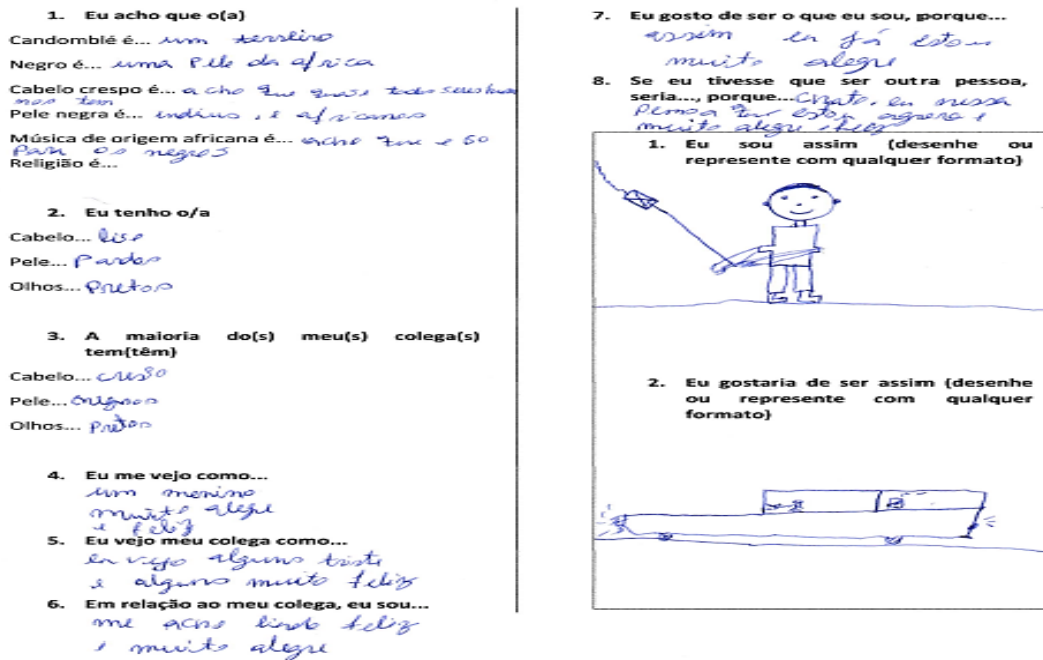 1. Eu acho que o(a)
Candomblé é... um terreiro
Negro é... uma Pele da africa
Cabelo crespo é... acho que quase todo
nos tem
Pele negra é... indius, e africanos
Música de origem africana é... acho que e so
Para os negros
Religião é...
2. Eu tenho o/a
Cabelo... liso
Pele... Pardo
Olhos... Pretos
3. A maioria do(s) meu(s) colega(s)
tem(têm)
Cabelo...
Pele...
Olhos... Pretos
4. Eu me vejo como...
um menino
muito alegre
e feliz
5. Eu vejo meu colega como...
eu vejo alguns triste
e alguns muito feliz
6. Em relação ao meu colega, eu sou...
me acho lindo feliz
e muito alegre
7. Eu gosto de ser o que eu sou, porque...
assim eu já estou
muito alegre
8. Se eu tivesse que ser outra pessoa,
seria..., porque... Chato, eu nessa
pessoa que estou agora e
muito alegre e feliz
1. Eu sou assim (desenhe ou
represente com qualquer formato)
2. Eu gostaria de ser assim (desenhe
ou represente com qualquer
formato)